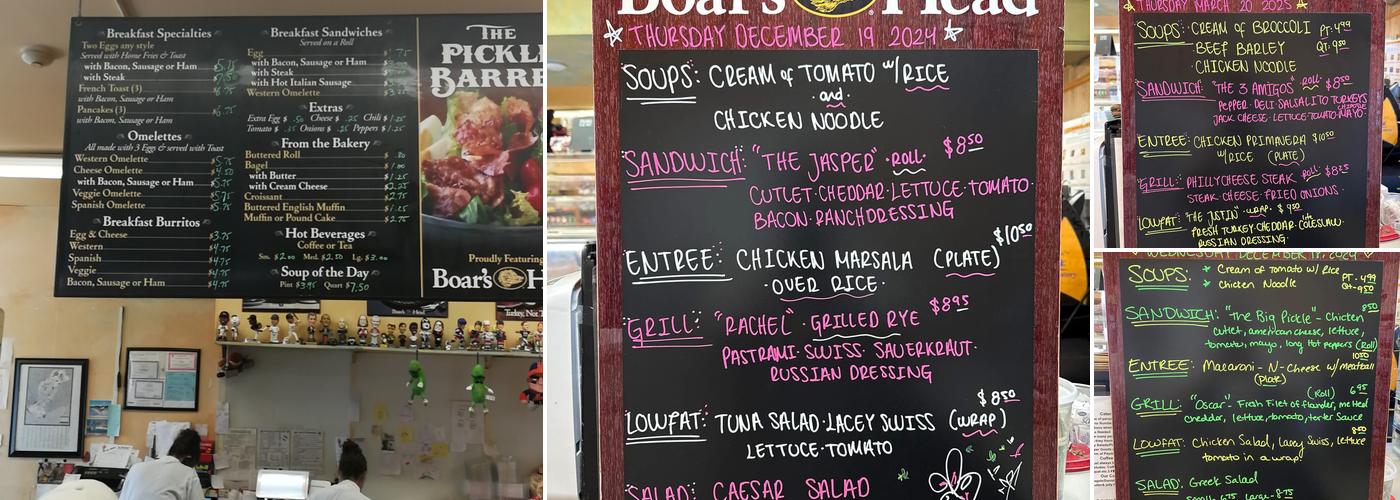 Breakfast Specialties
Two Eggs any style
Served with Home Fries & Toast
with Bacon, Sausage or Ham
with Steak
French Toast (3)
with Bacon, Sausage or Ham
Pancakes (3) $6.75
with Bacon, Sausage or Ham
Omelettes
All made with 3 Eggs & served with Toast
Western Omelette $5.75
Cheese Omelette $4.50
with Bacon, Sausage or Ham $5.75
Veggie Omelette $5.75
Spanish Omelette $5.75
Breakfast Burritos
Egg & Cheese $3.75
Western $4.75
Spanish $4.75
Veggie $4.75
Bacon, Sausage or Ham $4.75
Breakfast Sandwiches
Served on a Roll
Egg
with Bacon, Sausage or Ham
with Steak
with Hot Italian Sausage
Western Omelette
Extras
Extra Egg $ .50 Cheese $ .25 Chili $1.25
Tomato $ .35 Onions $ .25 Peppers $1.25
From the Bakery
Buttered Roll $ .80
Bagel $1.00
with Butter $1.25
with Cream Cheese $2.25
Croissant $2.75
Buttered English Muffin $1.25
Muffin or Pound Cake $2.75
Hot Beverages
Coffee or Tea
Sm. $2.00 Med. $2.50 Lg. $3.00
Soup of the Day
Pint $3.95 Quart $7.50
THE
PICKL
BARRE
Proudly Featuring
Boar's H
Boar's Head
THURSDAY DECEMBER 19 2024
SOUPS: CREAM of TOMATO w/ RICE
and
CHICKEN NOODLE
SANDWICH: "THE JASPER" ROLL $8.50
CUTLET·CHEDDAR·LETTUCE·TOMATO·
BACON·RANCH DRESSING
ENTREE: CHICKEN MARSALA (PLATE) $10.50
·OVER RICE·
GRILL: "RACHEL" · GRILLED RYE $8.95
PASTRAMI·SWISS·SAUERKRAUT·
RUSSIAN DRESSING
LOWFAT: TUNA SALAD·LACEY SWISS (WRAP) $8.50
LETTUCE·TOMATO
SALAD: CAESAR SALAD
THURSDAY MARCH 20 2025
SOUPS: ·CREAM OF BROCCOLI PT: 4.99
·BEEF BARLEY QT: 9.50
·CHICKEN NOODLE
SANDWICH: "THE 3 AMIGOS" ROLL $8.50
PEPPER·DELI·SALSALITO TURKEYS
JACK CHEESE·LETTUCE·TOMATO·CHIPOTLE MAYO·
ENTREE: CHICKEN PRIMAVERA $10.50
W/RICE (PLATE)
GRILL: PHILLY CHEESE STEAK ROLL
STEAK·CHEESE·FRIED ONIONS·
LOWFAT: "THE JUSTIN" WRAP· $9.50
FRESH TURKEY·CHEDDAR·COLESLAW·
RUSSIAN DRESSING·
WEDNESDAY DECEMBER
SOUPS: * Cream of Tomato w/ Rice PT-4.99
* Chicken Noodle Qt-9.50
SANDWICH: "The Big Pickle" - Chicken 8.50
cutlet, american cheese, lettuce,
tomato, mayo, long hot peppers (Roll)
ENTREE: Macaroni-N-Cheese w/ meatball 10.50
(Plate)
GRILL: "Oscar" - Fresh Filet of flounder, melted (Roll) 6.95
cheddar, lettuce, tomato, tarter Sauce
LOWFAT: Chicken Salad, lacey Swiss, lettuce 8.50
tomato in a wrap!
SALAD: Greek Salad
Small 6.75 large 8.75